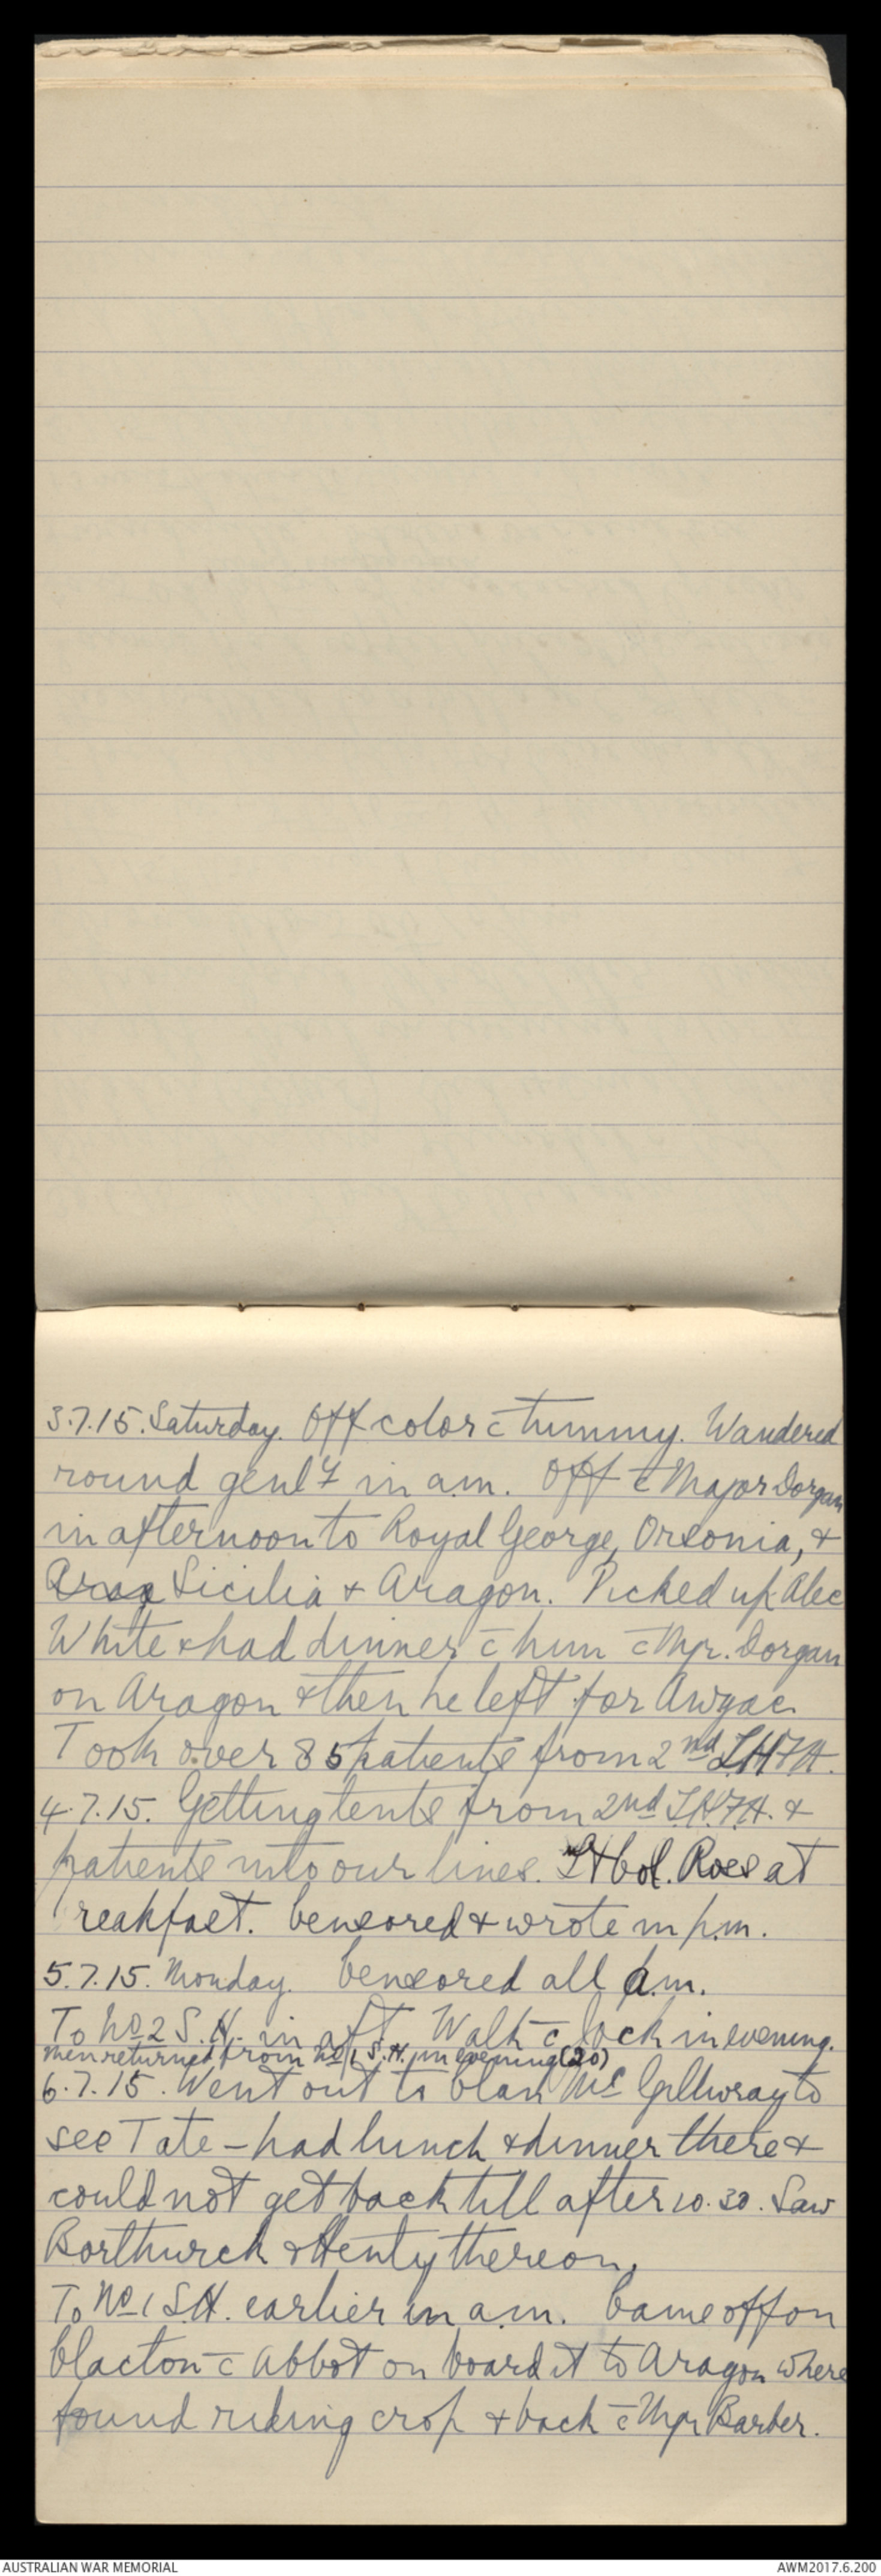 3.7.15. Saturday. Off color c̄ tummy. Wandered
round genly in a.m. Off c̄ Major Dorgan
in afternoon to Royal George, Orsonia, &
Arag Sicilia & Aragon. Picked up Alec
White & had dinner c̄ him c̄ Mjr. Dorgan
on Aragon & then he left for Anzac
Took over 85 patients from 2nd L.H.F.A.
4.7.15. Getting tents from 2nd L.H.F.A. &
patients into our lines. Lt Col. Ross at
breakfast. Censored & wrote in p.m.
5.7.15. Monday. Censored all a.m.
To No 2 S.H. in aft. Walk c̄ Jock in evening.
Men returned from No 1 S.H. in evening (20)
6.7.15. Went out to Clan McGillivray to
see Tate – had lunch & dinner there &
could not get back till after 10.30. Saw
Borthwick & Henty thereon.
To No 1 S.H. earlier in a.m. Came off on
Clacton c̄ Abbot on board it to Aragon where
found riding crop & back c̄ Mjr Barber.
AUSTRALIAN WAR MEMORIAL
AWM2017.6.200